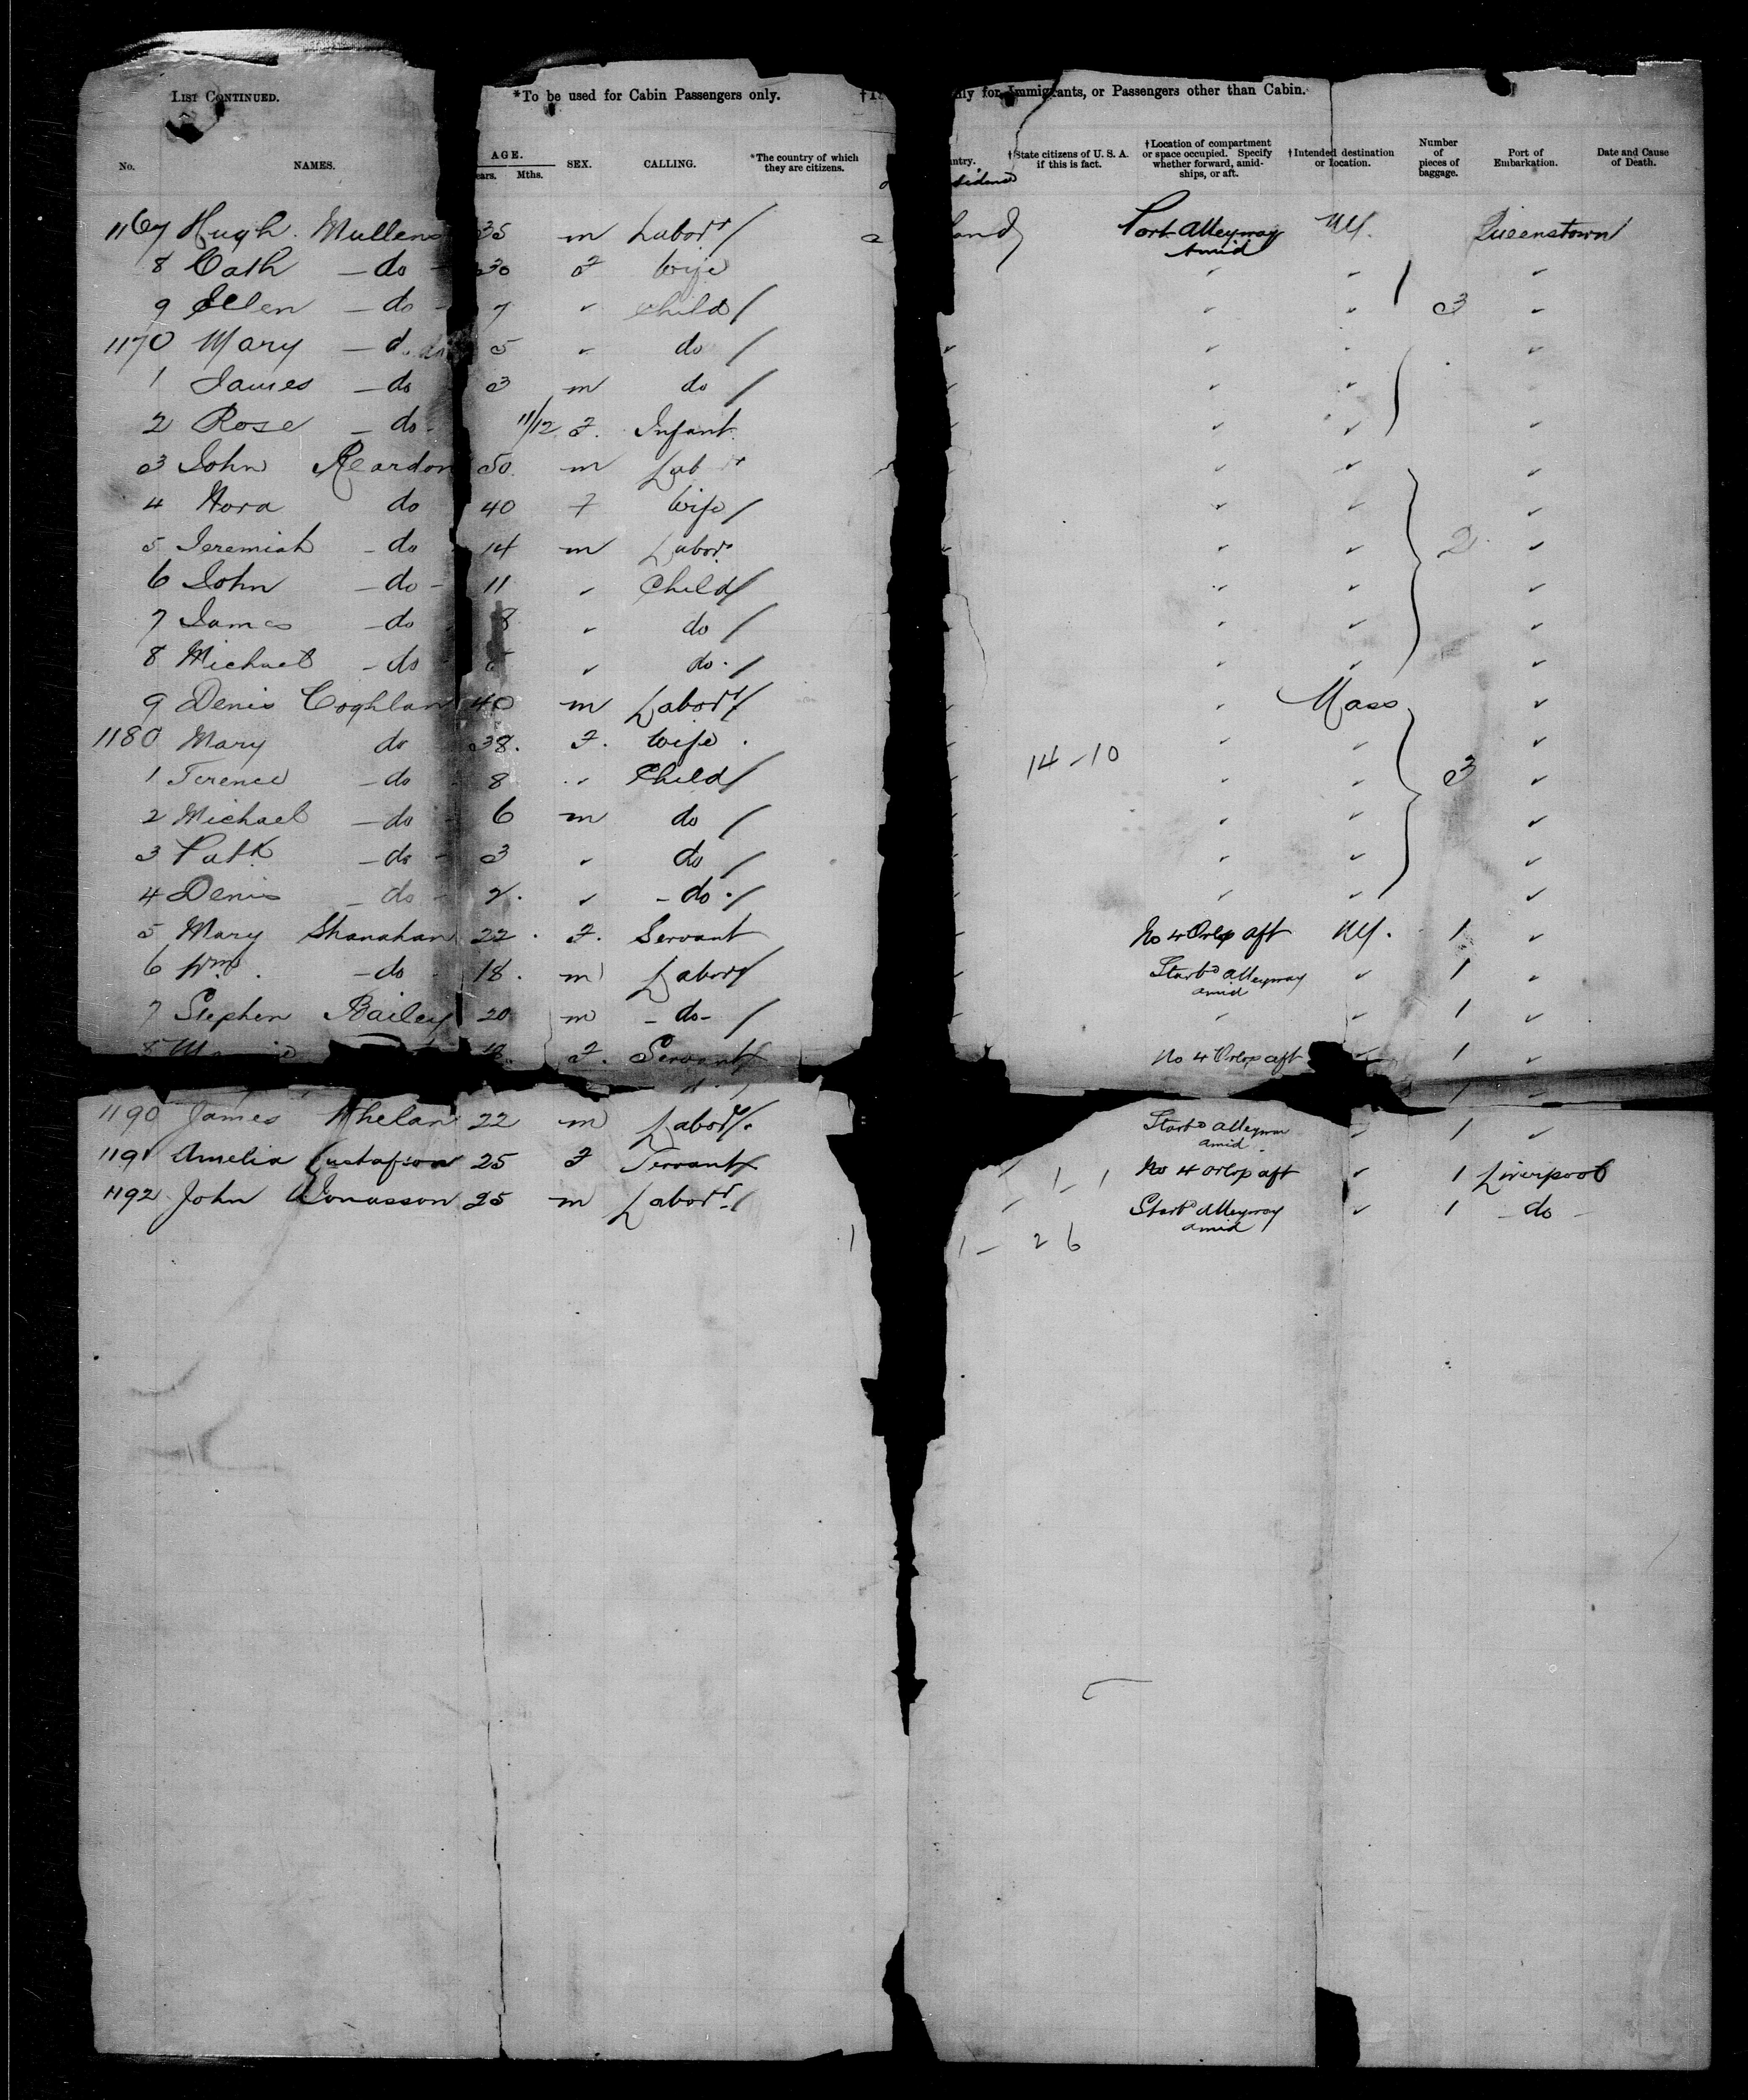 LIST CONTINUED. *To be used for Cabin Passengers only. nly for Immigrants, or Passengers other than Cabin.
No. NAMES. AGE. ears. Mths. SEX. CALLING. *The country of which they are citizens. ntry. †State citizens of U. S. A. if this is fact. †Location of compartment or space occupied. Specify whether forward, amid-ships, or aft. †Intended destination or location. Number of pieces of baggage. Port of Embarkation. Date and Cause of Death.
1167 Hugh Mullens 35 m Labor r / land Port Alleyway Amid NY. Queenstown
8 Cath - do - 30 F Wife ✓ ✓ ✓
9 Ellen - do - 7 ✓ Child / ✓ ✓ 3 ✓
1170 Mary - do 5 ✓ do / ✓ ✓ ✓
1 James - do 3 m do / ✓ ✓
2 Rose - do - 11/12 F. Infant. ✓ ✓ ✓
3 John Reardon 50 m Lab r ✓ ✓ ✓
4 Nora do 40 F Wife / ✓ ✓ ✓
5 Jeremiah - do 14 m Labor ✓ ✓ 2 ✓
6 John - do - 11 ✓ Child / ✓ ✓ ✓
7 James - do 8 ✓ do / ✓ ✓ ✓
8 Michael - do ✓ do. / ✓ ✓ ✓
9 Denis Coghlan 40 m Labor r / ✓ Mass ✓
1180 Mary do 38. F. Wife. ✓ ✓ ✓
14-10
1 Terence - do 8 Child / ✓ ✓ 3 ✓
2 Michael - do 6 m do / ✓ ✓ ✓
3 Patk - do - 3 ✓ do / ✓ ✓ ✓
4 Denis - do - 2. ✓ - do. / ✓ ✓ ✓
5 Mary Shanahan 22. F. Servant No 4 Orlop aft NY. 1 ✓
6 Wm. - do 18. m Labor / Starbd Alleyway amid ✓ 1 ✓
7 Stephen Bailey 20 m - do - / ✓ ✓ 1 ✓
8 18. F. Servant No 4 Orlop aft 1 ✓
1 ✓
1190 James Whelan 22 m Labor r /. Starbd Alleyway amid ✓ 1 ✓
1191 Amelia Gustafson 25 F Servant No 4 orlop aft ✓ 1 Liverpool
1192 John Jonasson 25 m Labor r. / Starbd Alleyway amid ✓ 1 - do -
1 - 26